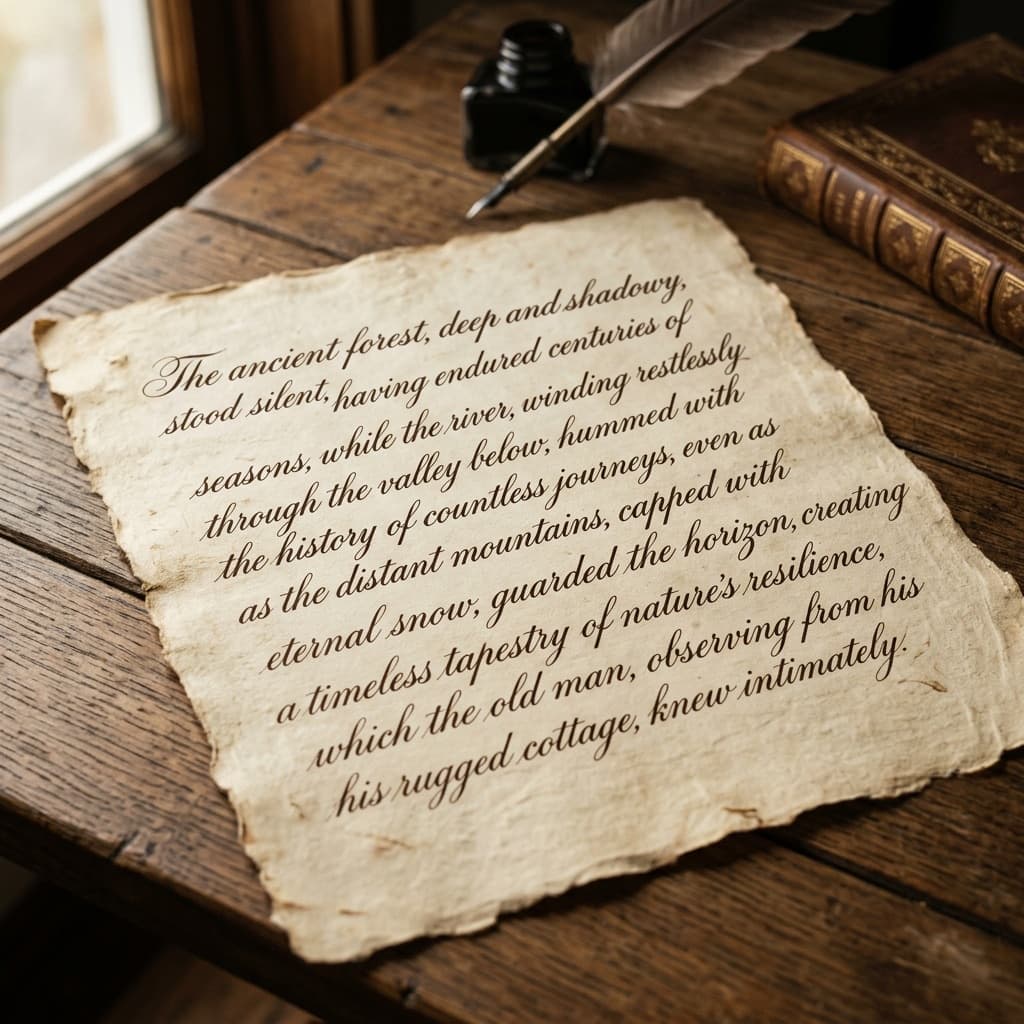 The ancient forest, deep and shadowy,
stood silent, having endured centuries of
seasons, while the river, winding restlessly
through the valley below, hummed with
the history of countless journeys, even as
as the distant mountains, capped with
eternal snow, guarded the horizon, creating
a timeless tapestry of nature's resilience,
which the old man, observing from his
his rugged cottage, knew intimately.